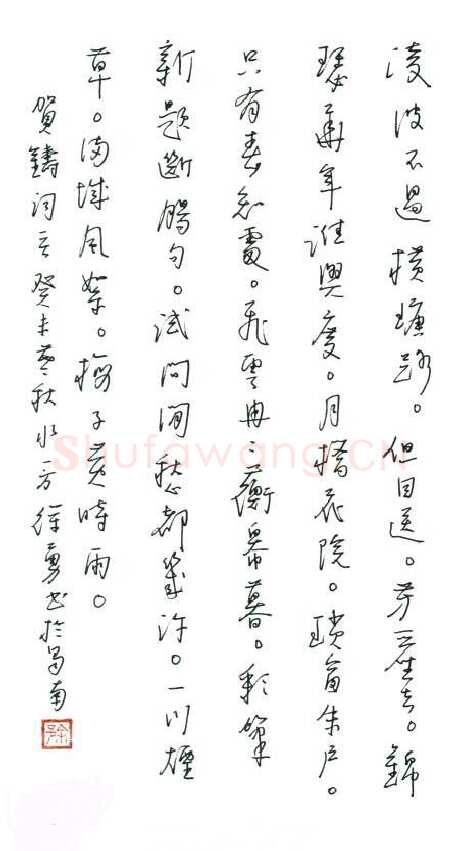 凌波不過橫塘路。但目送。芳塵去。錦
瑟華年誰與度。月橋花院。瑣窗朱户。
只有春知處。飛雲冉蘅皋暮。彩筆
新題斷腸句。試問閒愁都幾許。一川煙
草。滿城風絮。梅子黄時雨。
賀鑄詞 癸未暮秋水一方徐勇書於蜀南
Shufawang.CN